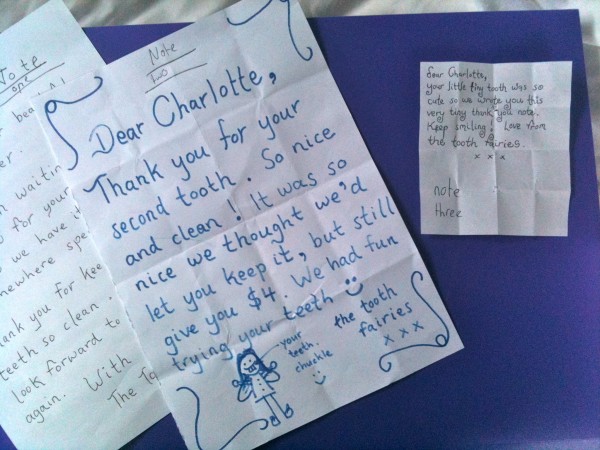 Note
one
waitin
for your
we have it
mewhere spe
hank you for kee
teeth so clean.
look forward to
again. With
The To
Note
Two
Dear Charlotte,
Thank you for your
second tooth. So nice
and clean! It was so
nice we thought we'd
let you keep it, but still
give you $4. We had fun
trying your teeth
the tooth
fairies
x x x
your
teeth.
chuckle
dear Charlotte,
your little tiny tooth was so
cute so we wrote you this
very tiny thank you note.
Keep smiling! Love from
the tooth fairies.
x x x
note
three